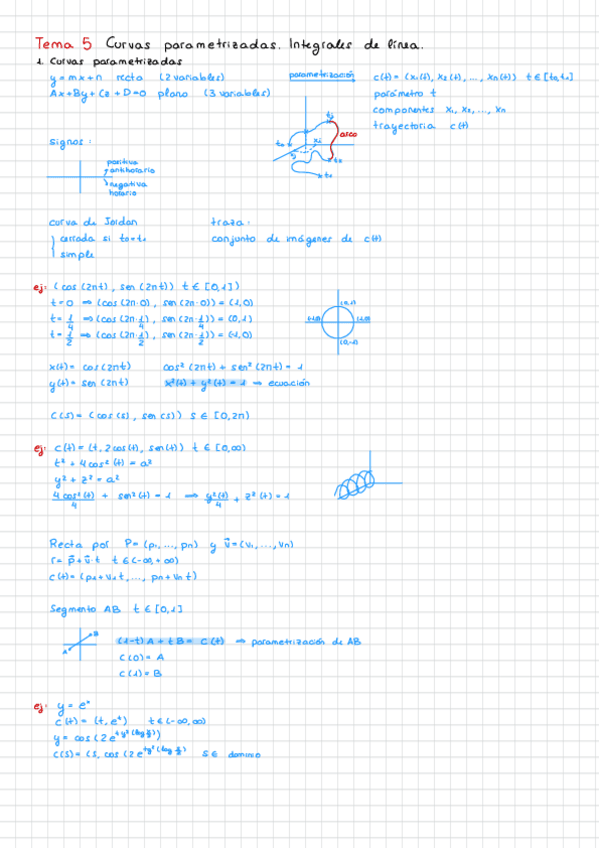 Tema 5 Curvas parametrizadas. Integrales de línea.
1. Curvas parametrizadas
y = mx + n recta (2 variables) parametrización c(t) = (x₁(t), x₂(t), ..., xn(t)) t ∈ [t₀, t₁]
Ax + By + Cz + D = 0 plano (3 variables) parámetro t
componentes x₁, x₂, ..., xn
trayectoria c(t)
arco
signos:
positiva
antihorario
negativa
horario
curva de Jordan traza:
cerrada si t₀ = t₁ conjunto de imágenes de c(t)
simple
ej: (cos(2πt), sen(2πt)) t ∈ [0,1])
t = 0 ⇒ (cos(2π·0), sen(2π·0)) = (1,0)
t = 1/4 ⇒ (cos(2π·1/4), sen(2π·1/4)) = (0,1)
t = 1/2 ⇒ (cos(2π·1/2), sen(2π·1/2)) = (-1,0)
(0,1)
(-1,0) (1,0)
(0,-1)
x(t) = cos(2πt) cos²(2πt) + sen²(2πt) = 1
y(t) = sen(2πt) x²(t) + y²(t) = 1 ⇒ ecuación
C(s) = (cos(s), sen(s)) s ∈ [0,2π)
ej: c(t) = (t, 2cos(t), sen(t)) t ∈ [0,∞)
t² + 4cos²(t) = a²
y² + z² = a²
4cos²(t)/4 + sen²(t) = 1 ⇒ y²(t)/4 + z²(t) = 1
Recta por P = (p₁, ..., pn) y v⃗ = (v₁, ..., vn)
r = p⃗ + v⃗·t t ∈ (-∞, +∞)
c(t) = (p₁ + v₁t, ..., pn + vnt)
Segmento AB t ∈ [0,1]
A B
(1-t)A + tB = c(t) ⇒ parametrización de AB
c(0) = A
c(1) = B
ej: y = eˣ
c(t) = (t, eᵗ) t ∈ (-∞, ∞)
y = cos(2e
c(s) = (s, cos(2e s ∈ dominio